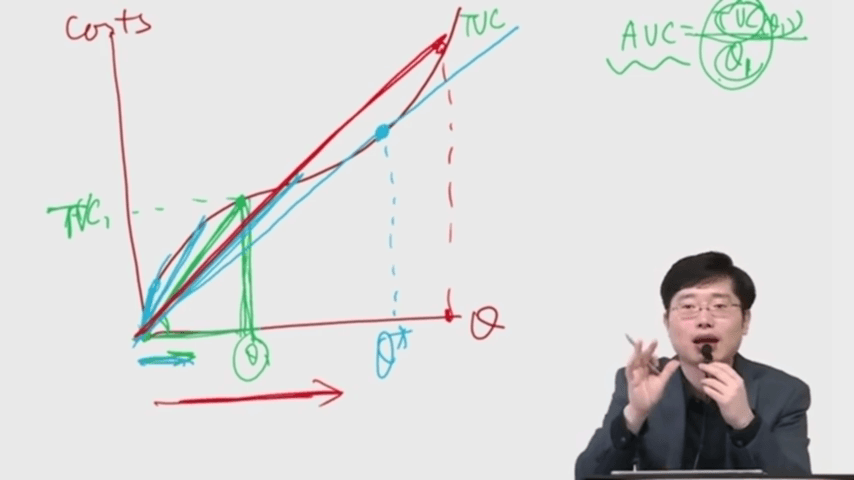 Costs
TVC
AVC = TVC(Q₁) / Q₁
TVC₁
Q₁
Q*
Q